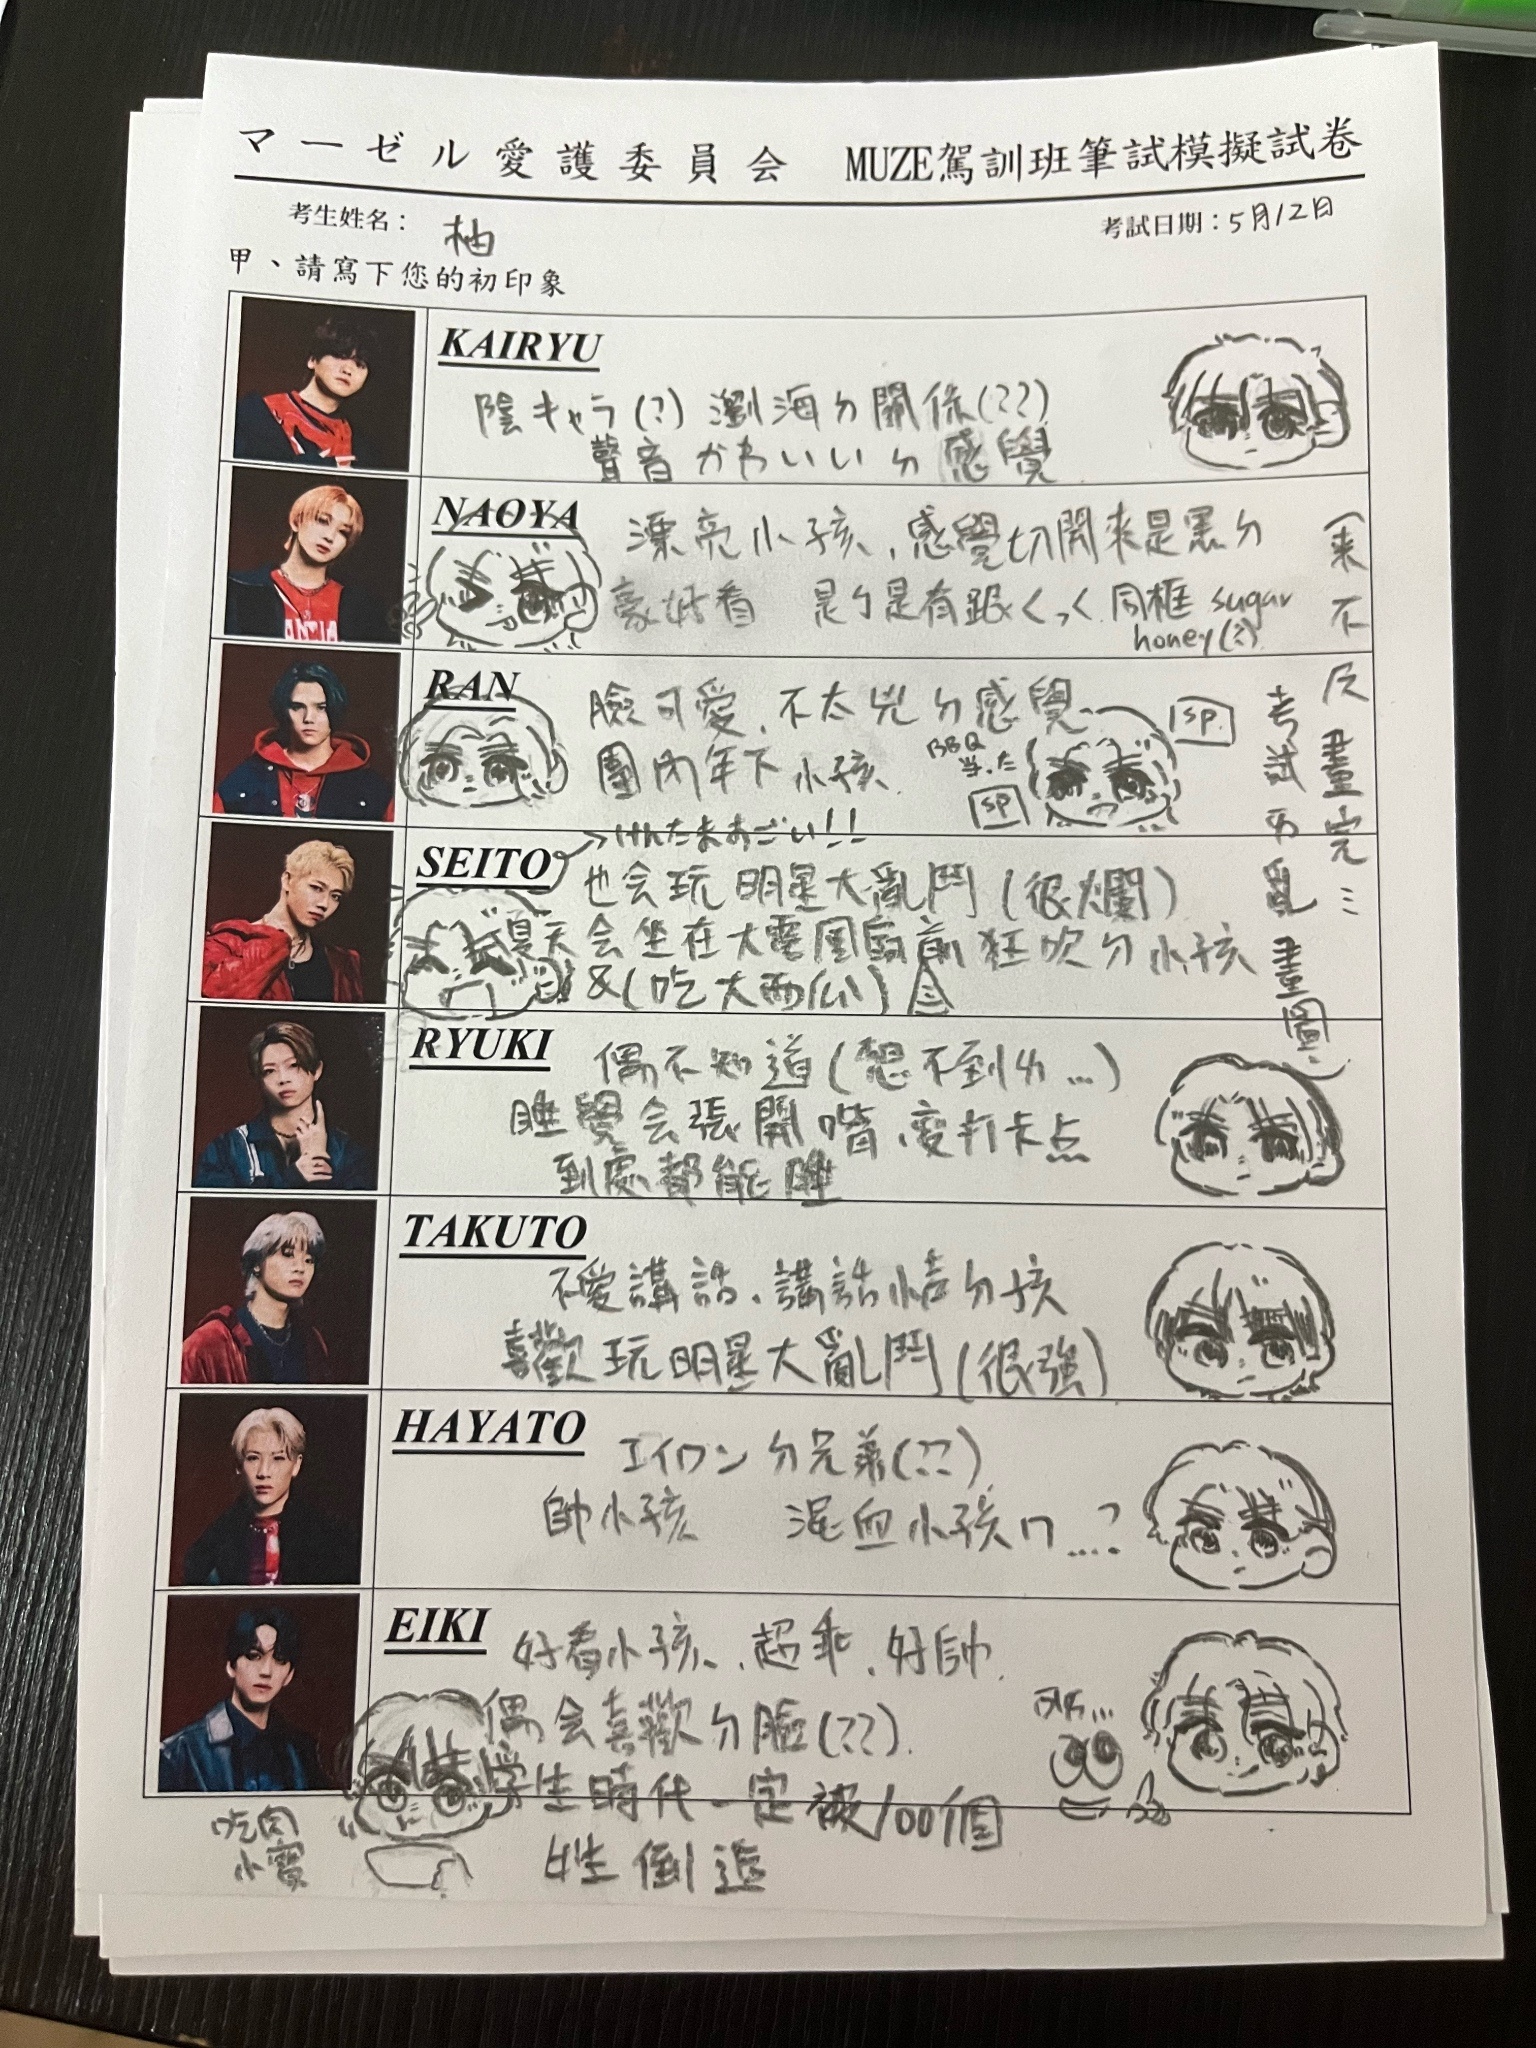 マーゼル愛護委員会 MUZE駕訓班筆試模擬試卷
考生姓名： 柚
考試日期：5月12日
甲、請寫下您的初印象
KAIRYU
陰キャラ(?) 瀏海ㄉ關係(??)
聲音かわいいㄉ感覺
NAOYA
漂亮小孩、感覺切開來是黑ㄉ
豪好看 是ㄅ是有跟くっく同框 sugar
honey(?)
RAN
臉可愛、不太兇ㄉ感覺
團內年下小孩
BBQ
sp
sp
SEITO
也会玩明星大亂鬥(很爛)
夏天会坐在大電風扇前狂吹ㄉ小孩
&(吃大西瓜)
考試另亂畫圖
(來不及畫完
RYUKI
偶不知道(想不到ㄌ...)
睡覺会張開嘴、愛打卡点
到處都能睡
TAKUTO
不愛講話、講話小声ㄉ孩
喜歡玩明星大亂鬥(很強)
HAYATO
エイワンㄉ兄弟(??)
帥小孩 混血小孩ㄇ...?
EIKI
好看小孩、超乖、好帥
偶会喜歡ㄉ臉(??)
学生時代一定被100個
女生倒追
吃肉
小寶